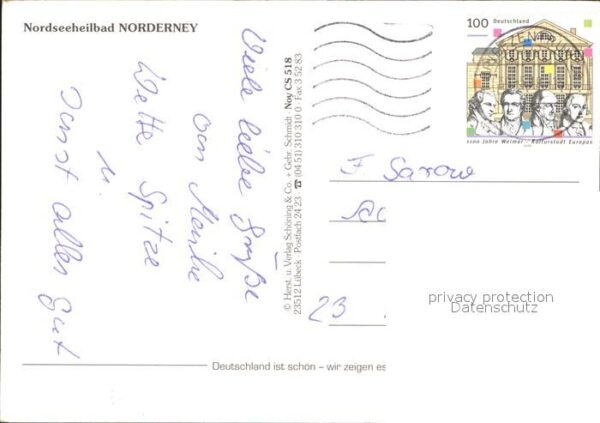 Nordseeheilbad NORDERNEY
Viele liebe Grüße
von
Wette Spitze
u.
sonst alles gut
© Herst. u. Verlag Schöning & Co. + Gebr. Schmidt · Noy CS 518
23512 Lübeck · Postfach 24 23 ☎ (04 51) 310 310 0 · Fax 3 52 83
100 Deutschland
1100 Jahre Weimar – Kulturstadt Europas
F. Sarow
23
privacy protection
Datenschutz
Deutschland ist schön – wir zeigen es